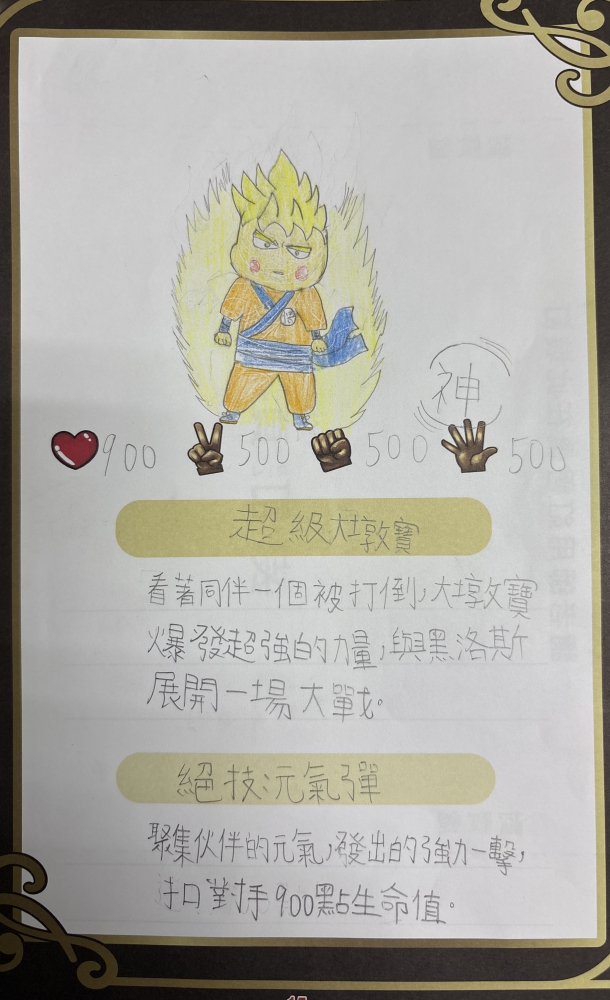 神
900 500 500 500
超級大墩寶
看著同伴一個被打倒,大墩寶
爆發超強的力量,與黑洛斯
展開一場大戰。
絕技:元氣彈
聚集伙伴的元氣,發出的強力一擊,
扣對手900點生命值。